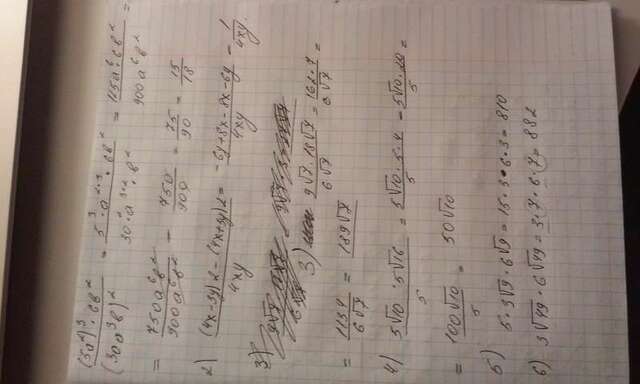 (5a²)³ · 6в² / (30a³в)² = 5³ · a²·³ · 6в² / 30² · a³·² · в² = 125a⁶ · 6в² / 900a⁶в² =
= 750a⁶в² / 900a⁶в² = 750 / 900 = 75 / 90 = 15 / 18
2) (4x-3y)2-(4x+3y)2 / 4xy = -6y+8x-8x-6y / 4xy = 1 / 4xy.
3) 9√7 · 18√7 / 6√7 = 162 · 7 / 6√7 =
= 1134 / 6√7 = 189√7
4) 5√10 · 5√16 / 5 = 5√10 · 5 · 4 / 5 = 5√10 · 20 / 5 =
= 100√10 / 5 = 50√10
5) 5 · 3√9 · 6√9 = 15 · 3 · 6 · 3 = 810
6) 3√49 · 6√49 = 3 · 7 · 6 · 7 = 882